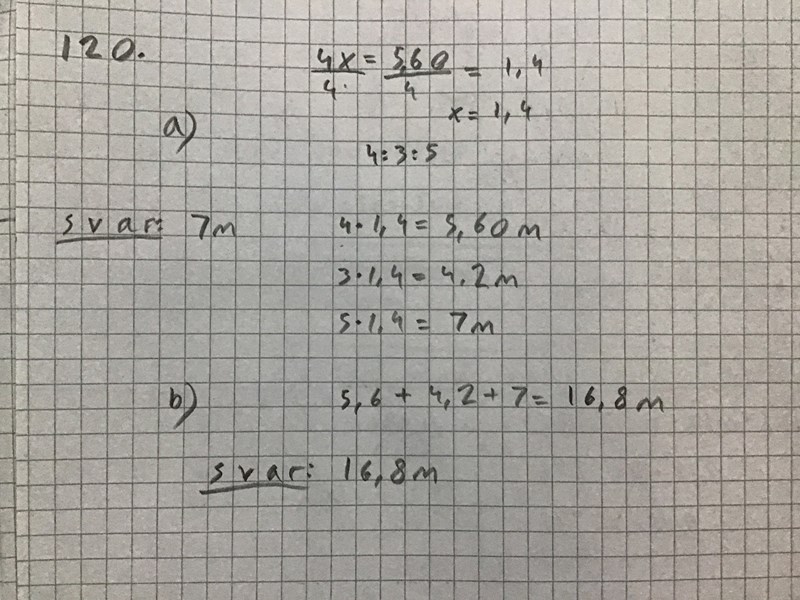 120.
4x = 5,60 = 1,4
4. 4
x = 1,4
a)
4:3:5
svar: 7m
4·1,4 = 5,60 m
3·1,4 = 4,2 m
5·1,4 = 7m
b) 5,6 + 4,2 + 7 = 16,8 m
svar: 16,8 m